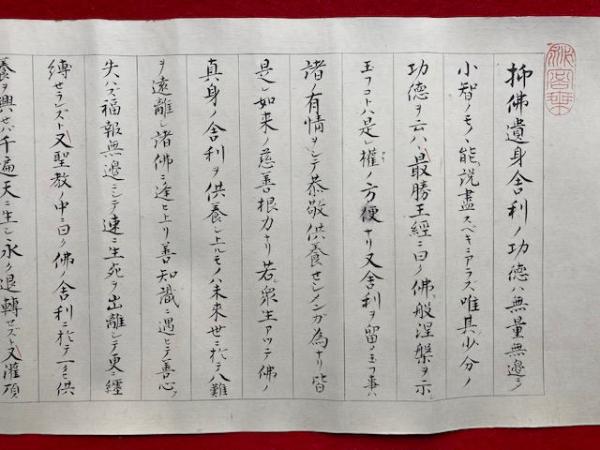 抑佛遺身舎利ノ功徳ハ無量無邊ニシテ
小智ノモノ能説盡スベキニアラズ唯其少分ノ
功徳ヲ云ハヾ最勝王經ニ曰ク佛般涅槃ヲ示シ
玉フコトハ是レ權ノ方便ナリ又舎利ヲ留メ玉フ事ハ
諸ノ有情ヲシテ恭敬供養セシメンガ為ナリ皆
是レ如来ノ慈善根力ナリ若衆生アツテ佛ノ
真身ノ舎利ヲ供養シ上ルモノハ未来世ニ於テ八難
ヲ遠離シ諸佛ニ逢ヒ上リ善知識ニ遇ヒテ善心ヲ
失ハズ福報無邊ニシテ速ニ生死ヲ出離シテ更ニ纏
縛セラレズト又聖教ノ中ニ曰ク佛ノ舎利ニ於テ一タビ供
養ヲ興セバ千遍天ニ生シ永ク退轉セズト又灌頂